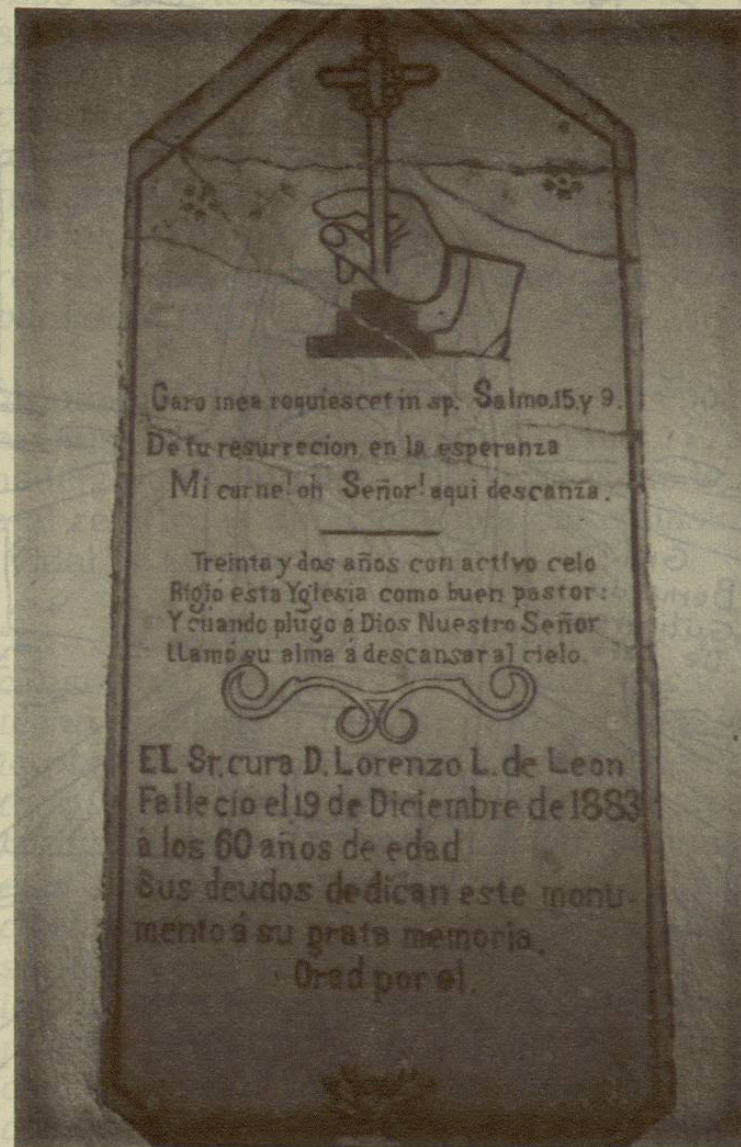 Caro mea requiescet in sp. Salmo.15.y 9.
De tu resurrecion en la esperanza
Mi carne! oh Señor! aqui descanza.
Treinta y dos años con activo celo
Rigió esta Yglesia como buen pastor:
Y cuando plugo á Dios Nuestro Señor
LLamó su alma á descansar al cielo.
EL Sr. cura D. Lorenzo L. de Leon
Fallecio el 19 de Diciembre de 1883
á los 60 años de edad
Sus deudos dedican este monu-
mento á su grata memoria.
Orad por el.